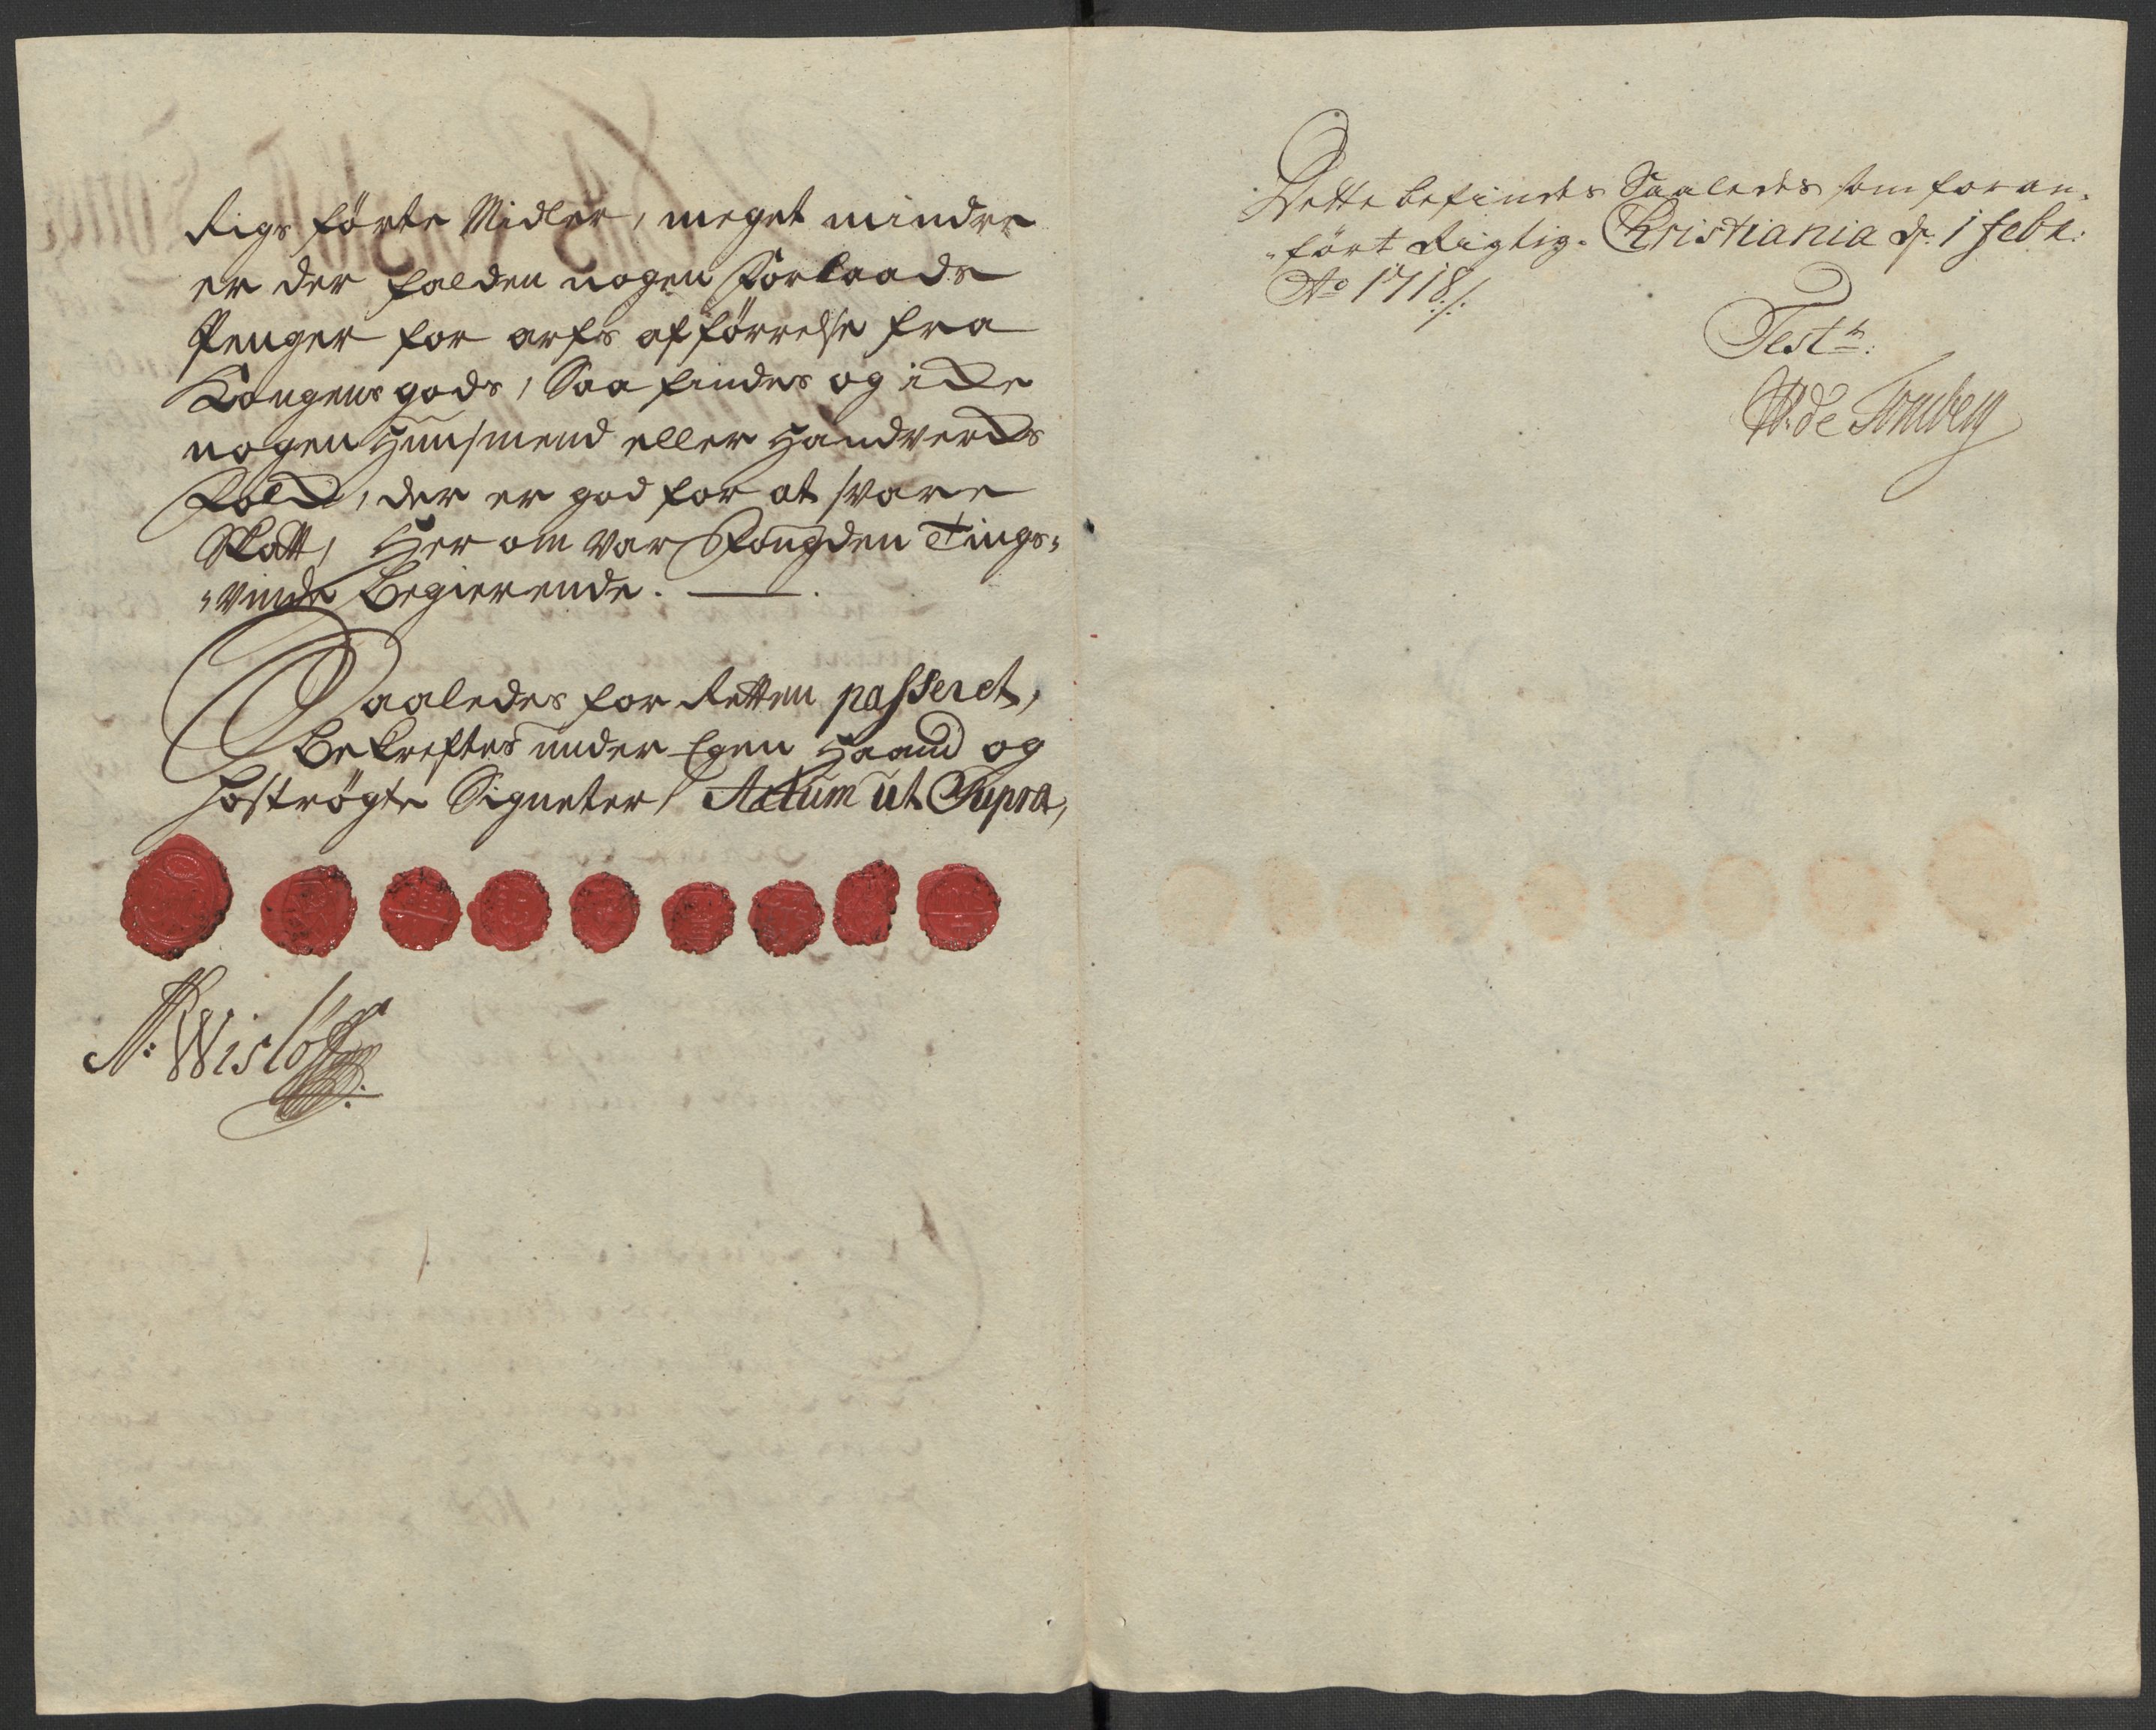 Rigs förte Midler, meget mindre
er der falden nogen Forlaads
Penger for arfs afförrelse fra
Kongens gods, Saa findes og icke
nogen Huusmend eller Handvercks
Folck, der er god for at svare
Skatt, Her om var Fougden Tings-
-vinde Begierende.
Saaledes for Retten passeret,
Bekreftes under Egen Haand og
hoströgte Signeter, Actum ut Supra,
N: Wislöff
Dette befindes Saaledes som foran-
-fört Rigtig. Christiania d: 1 febr:
Ao 1718./.
Test:
de Tonsberg